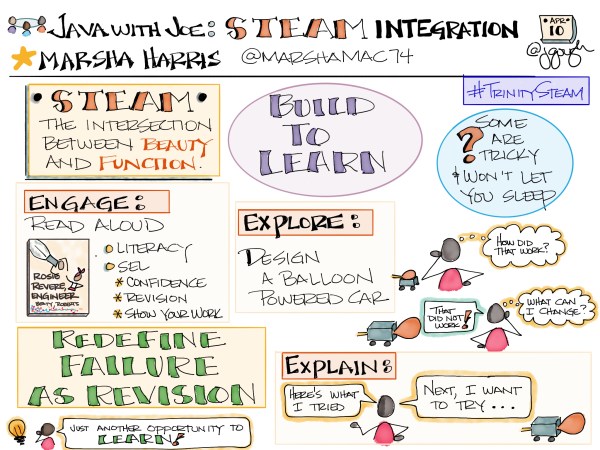 JAVA WITH JOE: STEAM INTEGRATION
APR
10
MARSHA HARRIS @MARSHAMAC74
#TRINITYSTEAM
STEAM:
THE INTERSECTION
BETWEEN BEAUTY
AND FUNCTION.
BUILD
TO
LEARN
SOME
? ARE
TRICKY
& WON'T LET
YOU SLEEP
ENGAGE:
READ ALOUD
ROSIE
REVERE,
ENGINEER
LITERACY
SEL
* CONFIDENCE
* REVISION
* SHOW YOUR WORK
EXPLORE:
DESIGN
A BALLOON
POWERED CAR
HOW DID
THAT WORK?
THAT
DID NOT
WORK!
WHAT CAN
I CHANGE?
REDEFINE
FAILURE
AS REVISION
JUST ANOTHER OPPORTUNITY TO
LEARN!
EXPLAIN:
HERE'S WHAT
I TRIED
NEXT, I WANT
TO TRY...